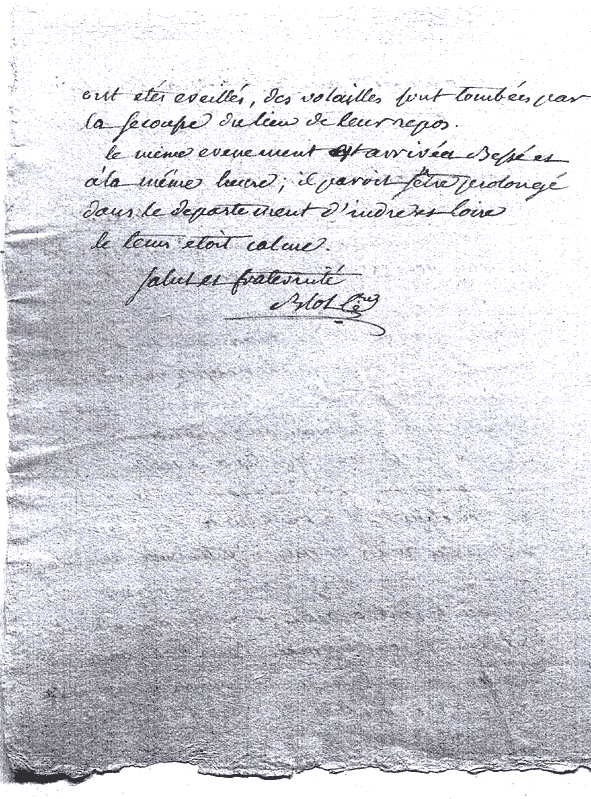 ont etés eveillés, des volailles sont tombées par
la secousse du lieu de leur repos.
le même evenement est arrivé a Bessé et
à la même heure; il paroit s'être prolongé
dans le departement d'indre et loire
le tems etoit calme.
Salut et fraternité